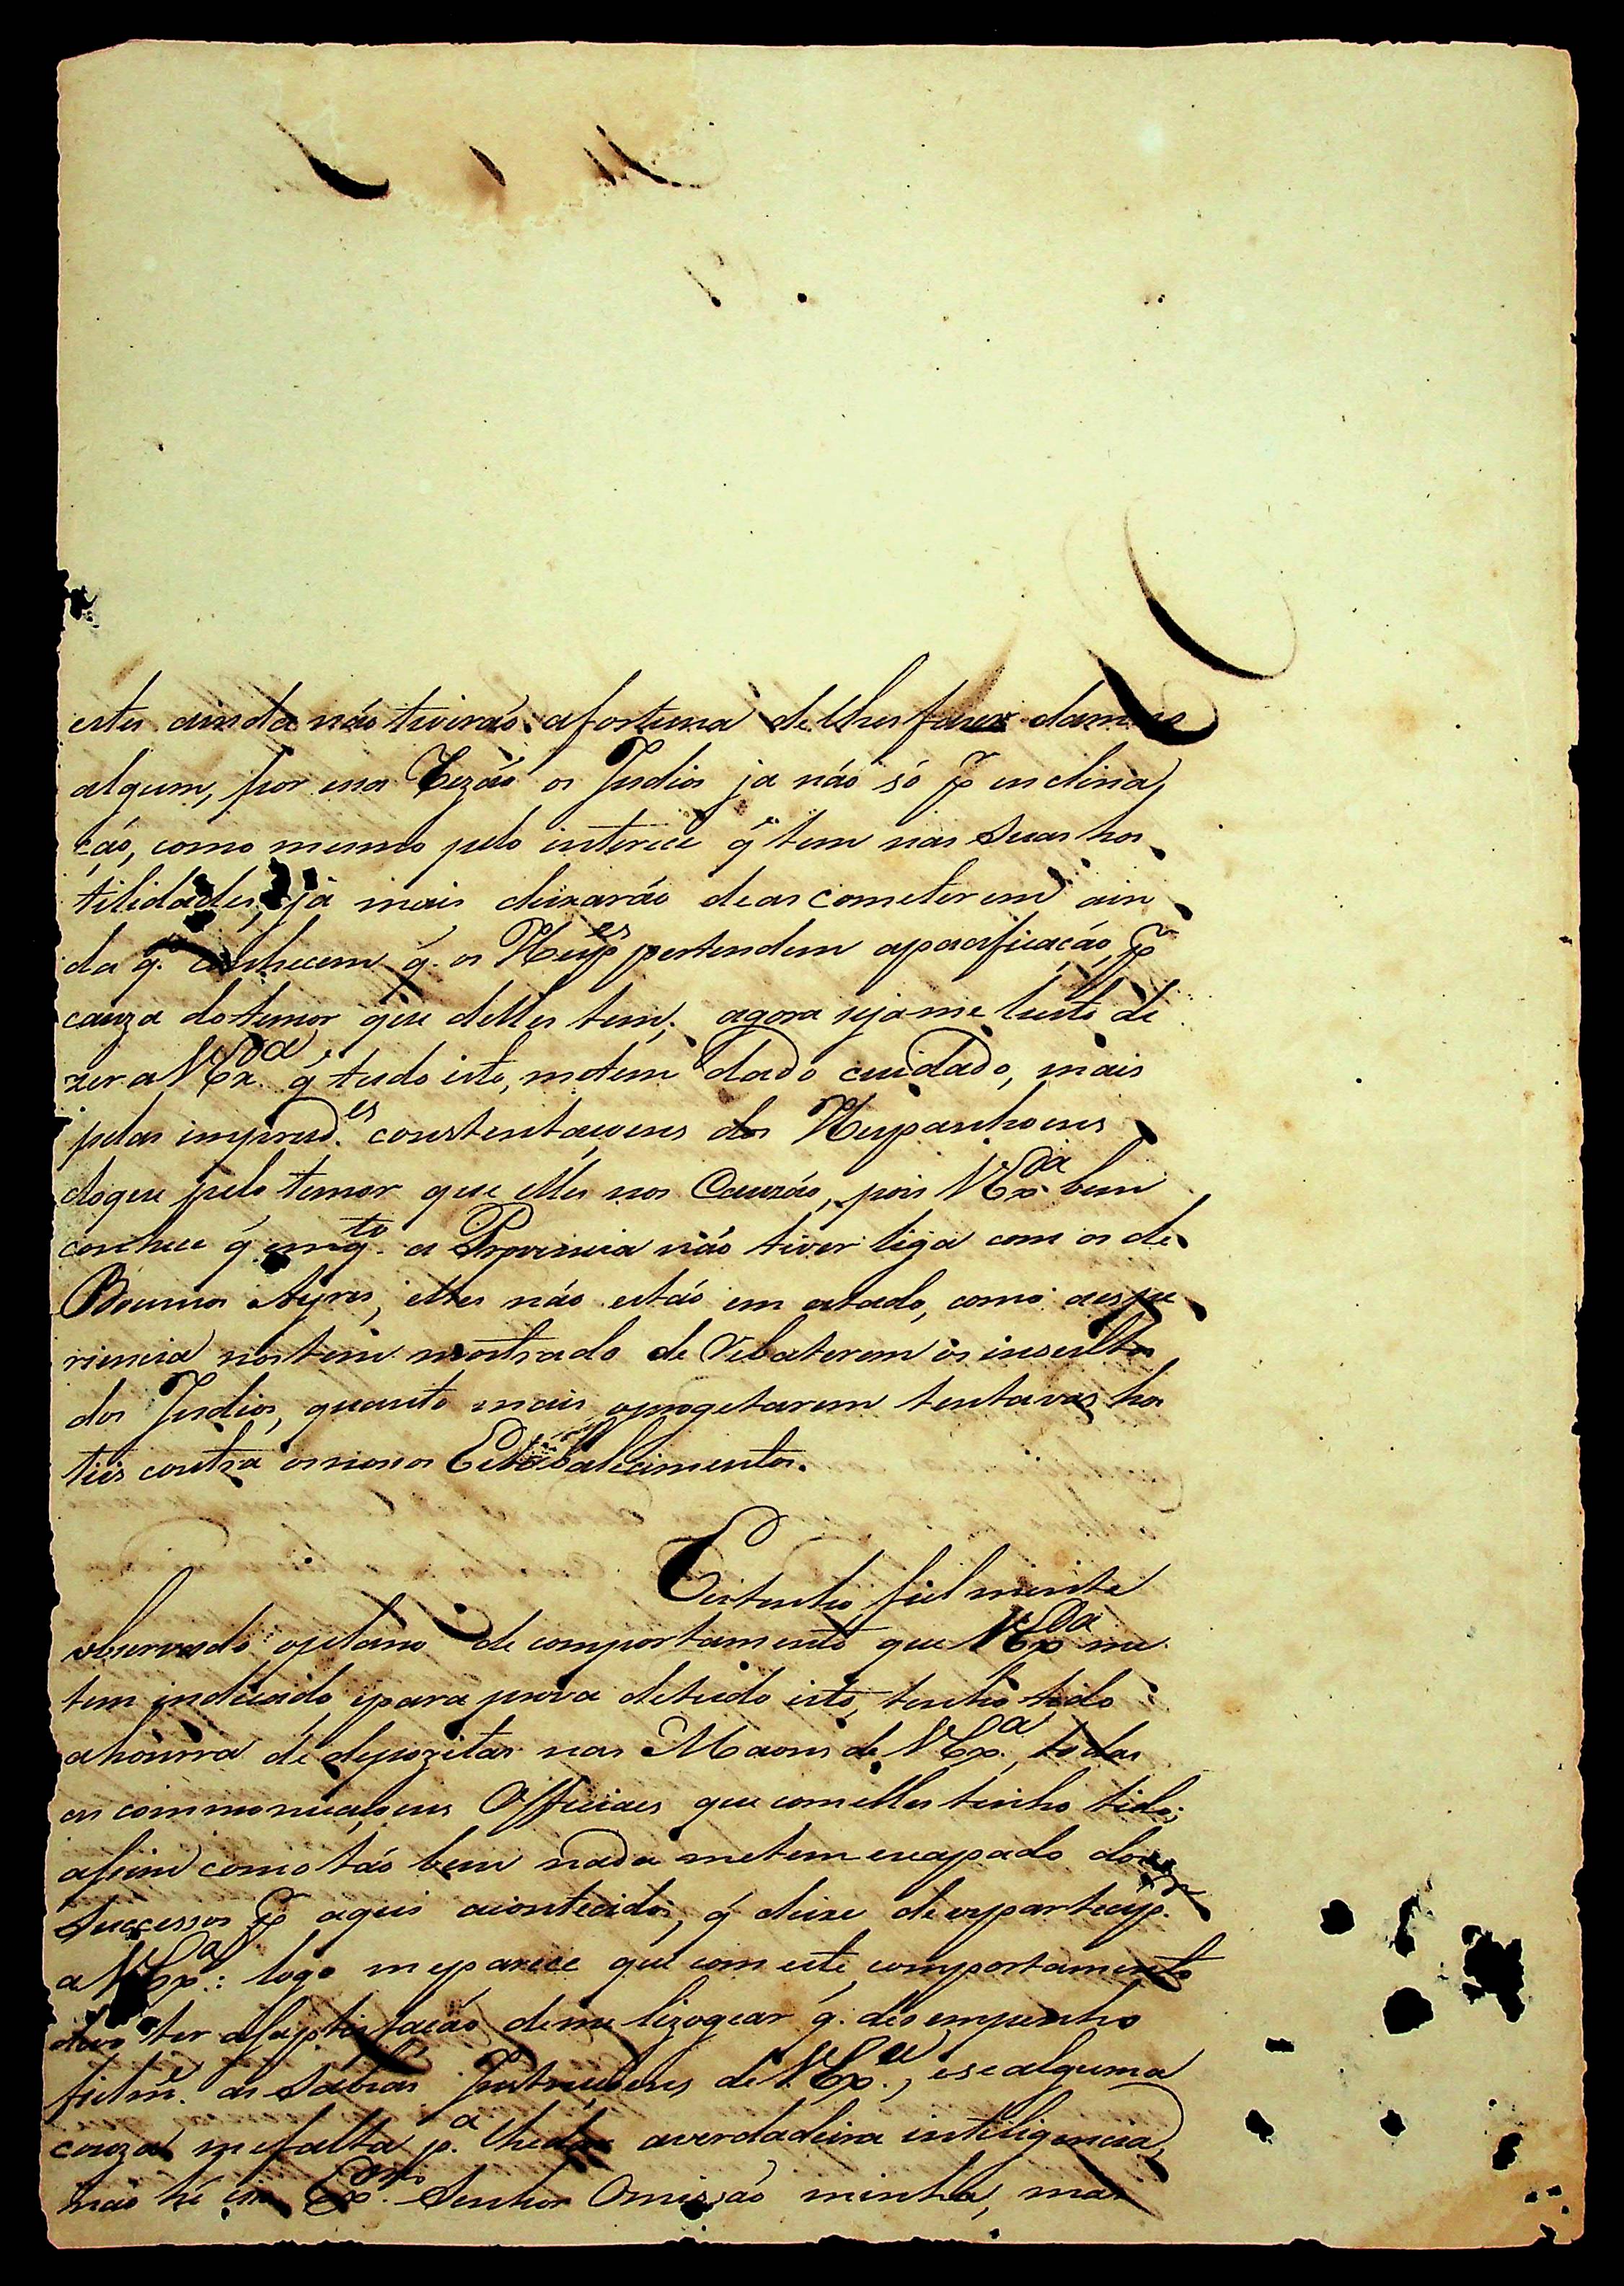 estes ainda náo tiveráo afortuna de lhes fazer damno
algum, por essa Rezáo os Indios ja náo só p inclina,
cáo, como mesmo pelo interece q̃ tem nas suas hos
tilidades, já mais deixaráo deas cometerem ain
da q̃ conhecem q̃. os Hesp.es pertendem apacificacáo, p
cauza dotemor que delles tem; agora sejame licito di
zer a VEx.a q̃ tudo isto, metem dado cuidado, mais
pelas imprud.es constentaçoens dos Hespanhoens
doque pelo temor que elles nos Cauzáo, pois VEx.a bem
conhece q̃ emq.to a Provincia náo tiver liga com os de
Buenos Ayres, elles náo estáo em estado, como aespe
riencia nostem mostrado de rebaterem os insultos
dos Indios, quanto mais oprogetarem tentavas hos
tiis contra osnosos Estabalecimentos.
Eu tenho fiel mente
observado oplano de comportamento que VEx.a me
tem indicado, epara prova detudo isto, tenho tido
ahonrra de depozitar nas Maons de VEx.a, todas
as commonicaçoens Officiaes que comelles tenho tido;
assim como táo bem nada metem escapado dos
successos p aqui acontecidos, q̃ deixe de expartecip.
a VEx.a: logo meparece que com este comportamento
devo ter asaptisfacáo deme lizogear q̃. desempenho
fielm̃. as sabias Instruçoens de VEx.a, ese alguma
couza mefalta p.a lhedar averdadeira inteligencia,
náo hé Ex.mo Senhor Omissáo minha, mas